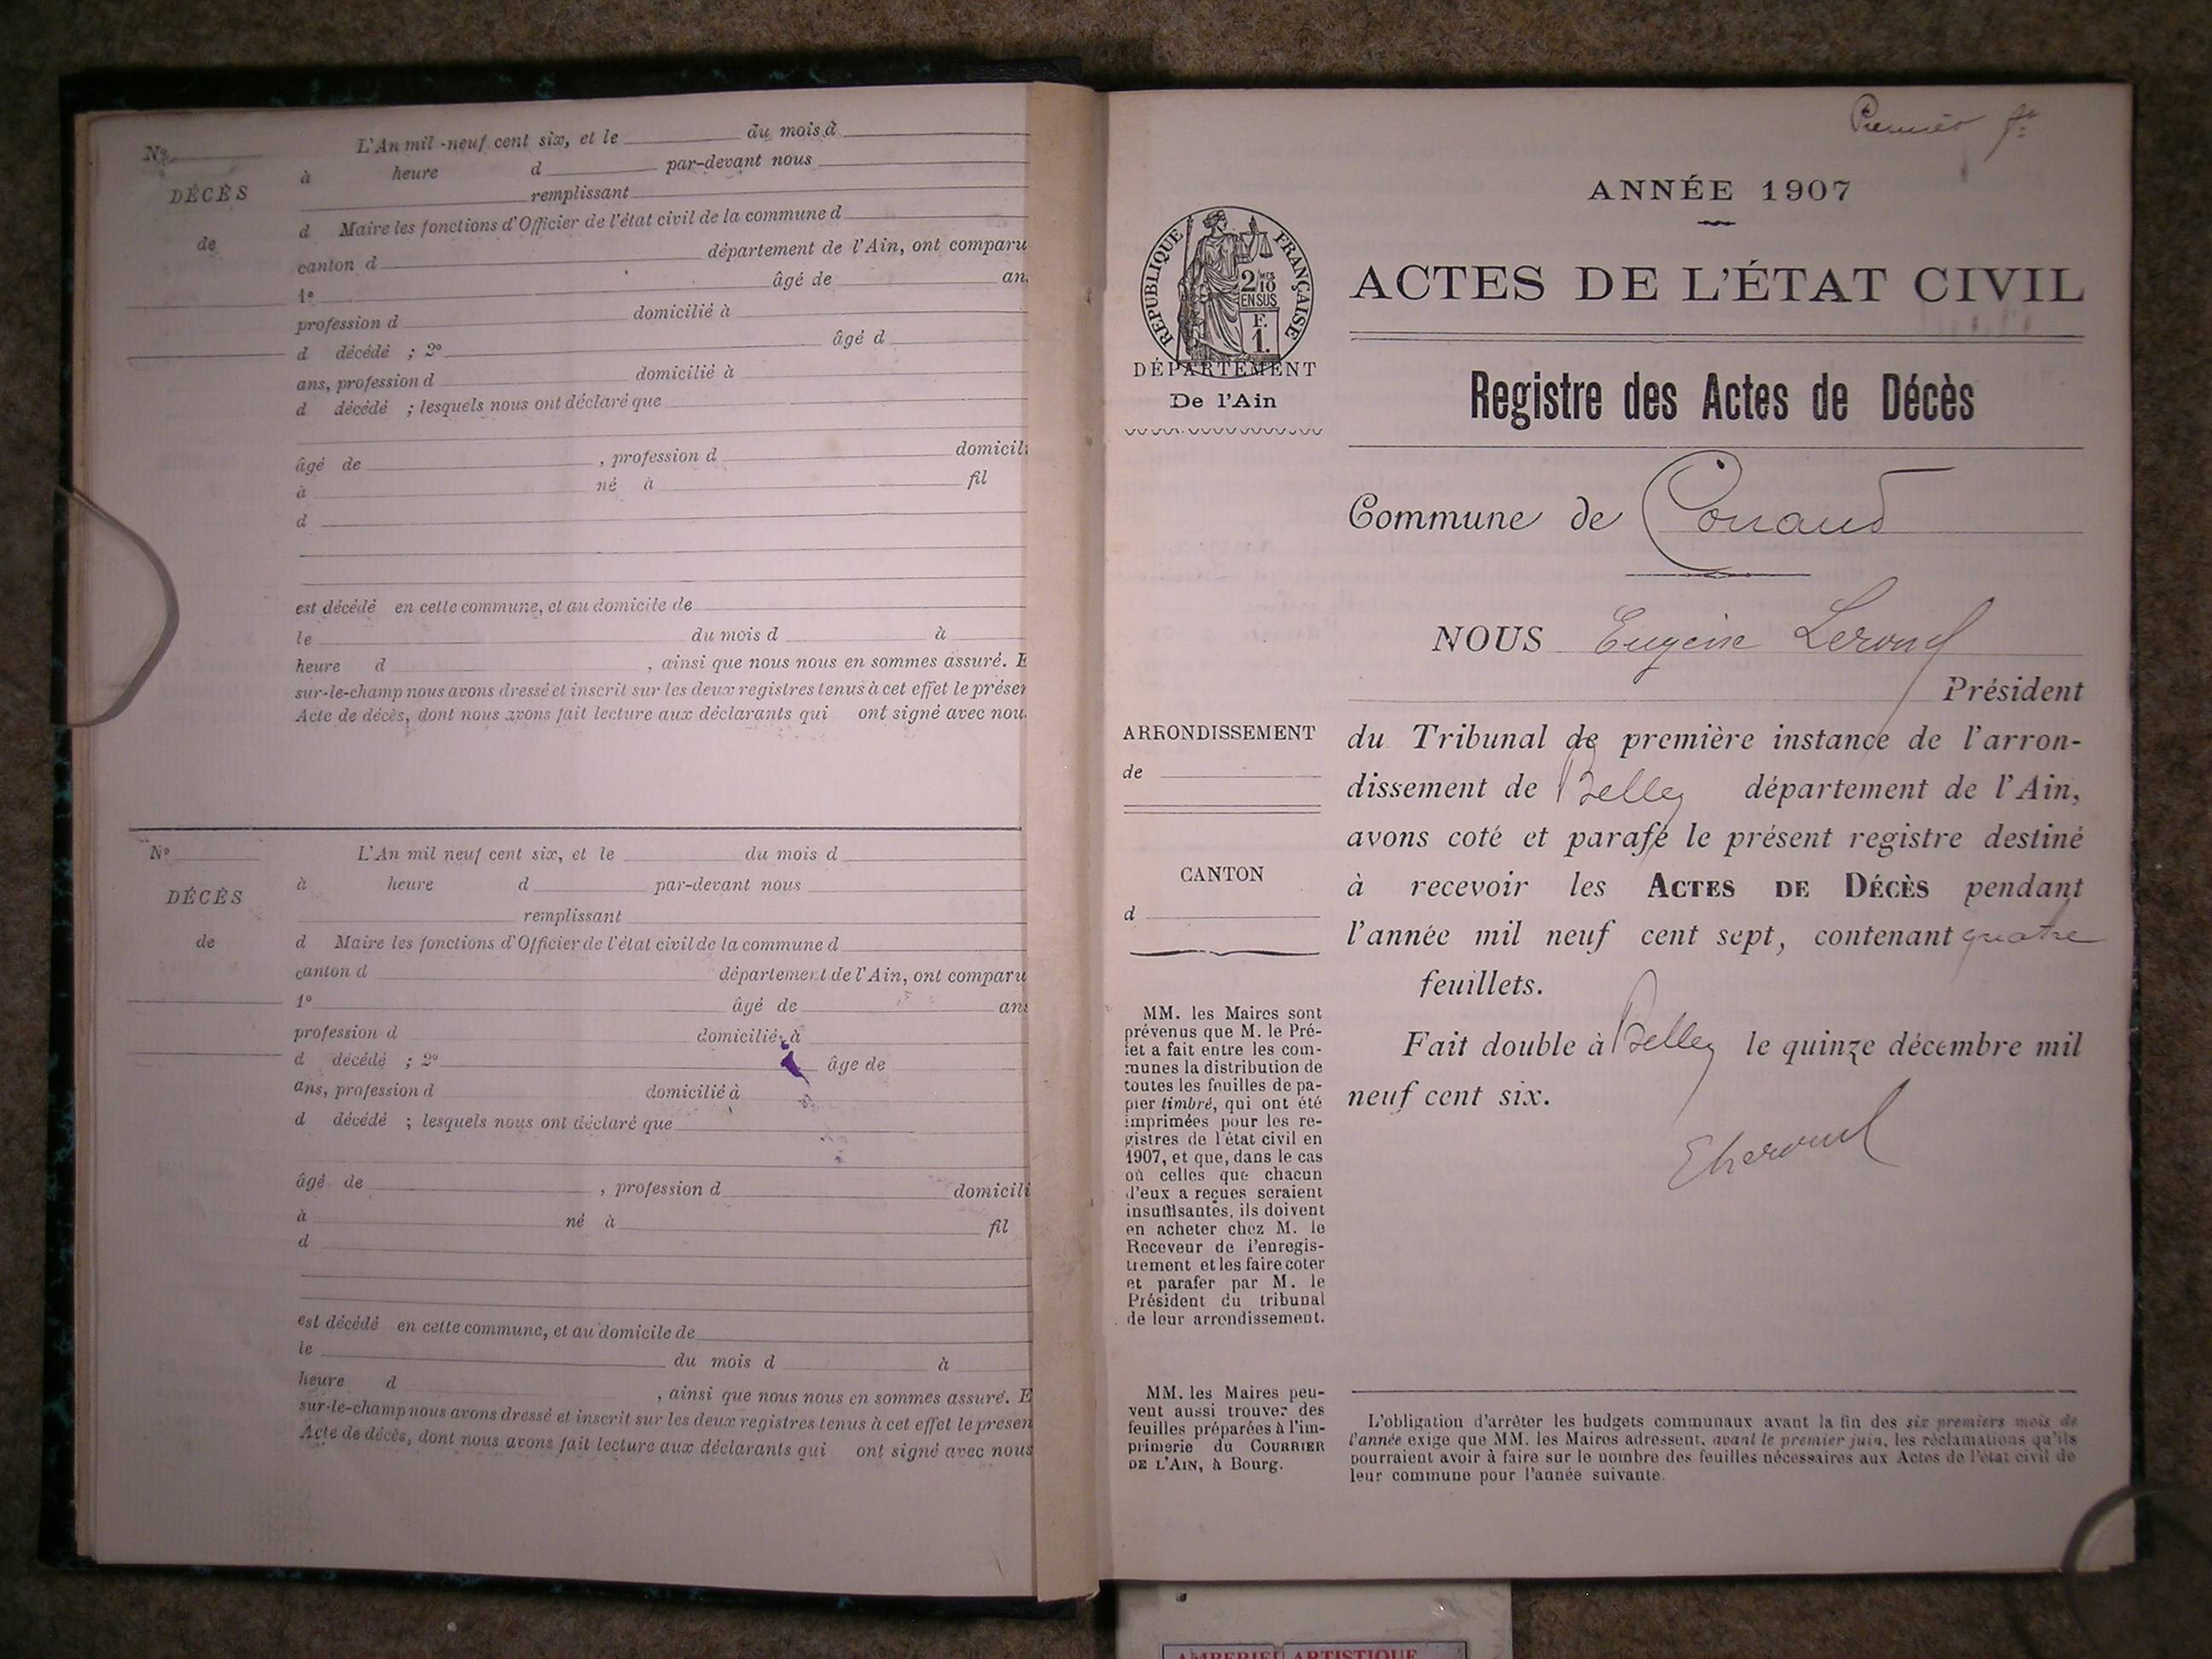 N°
DÉCÈS
de
L'An mil-neuf cent six, et le du mois d
à heure d par-devant nous
remplissant
d Maire les fonctions d'Officier de l'état civil de la commune d
canton d département de l'Ain, ont comparu
1° âgé de an
profession d domicilié à
d décédé ; 2° âgé d
ans, profession d domicilié à
d décédé ; lesquels nous ont déclaré que
âgé de , profession d domicili
à né à fil
d
est décédé en cette commune, et au domicile de
le du mois d à
heure d , ainsi que nous nous en sommes assuré. E
sur-le-champ nous avons dressé et inscrit sur les deux registres tenus à cet effet le présen
Acte de décès, dont nous avons fait lecture aux déclarants qui ont signé avec nou
N°
DÉCÈS
de
L'An mil neuf cent six, et le du mois d
à heure d par-devant nous
remplissant
d Maire les fonctions d'Officier de l'état civil de la commune d
canton d département de l'Ain, ont comparu
1° âgé de ans
profession d domicilié à
d décédé ; 2° âge de
ans, profession d domicilié à
d décédé ; lesquels nous ont déclaré que
âgé de , profession d domicili
à né à fil
d
est décédé en cette commune, et au domicile de
le du mois d à
heure d , ainsi que nous nous en sommes assuré. E
sur-le-champ nous avons dressé et inscrit sur les deux registres tenus à cet effet le présen
Acte de décès, dont nous avons fait lecture aux déclarants qui ont signé avec nous
Premier
ANNÉE 1907
ACTES DE L'ÉTAT CIVIL
RÉPUBLIQUE FRANÇAISE
2/10
EN SUS
F.
1.
DÉPARTEMENT
De l'Ain
Registre des Actes de Décès
Commune de Conand
NOUS Eugène Leroud
Président
du Tribunal de première instance de l'arron-
dissement de Belley département de l'Ain,
avons coté et parafé le présent registre destiné
à recevoir les ACTES DE DÉCÈS pendant
l'année mil neuf cent sept, contenant quatre
feuillets.
Fait double à Belley le quinze décembre mil
neuf cent six.
ARRONDISSEMENT
de
CANTON
d
MM. les Maires sont
prévenus que M. le Pré-
fet a fait entre les com-
munes la distribution de
toutes les feuilles de pa-
pier timbré, qui ont été
imprimées pour les re-
gistres de l'état civil en
1907, et que, dans le cas
où celles que chacun
d'eux a reçues seraient
insuffisantes, ils doivent
en acheter chez M. le
Receveur de l'enregis-
trement et les faire coter
et parafer par M. le
Président du tribunal
de leur arrondissement.
MM. les Maires peu-
vent aussi trouver des
feuilles préparées à l'im-
primerie du COURRIER
DE L'AIN, à Bourg.
L'obligation d'arrêter les budgets communaux avant la fin des six premiers mois de
l'année exige que MM. les Maires adressent, avant le premier juin, les réclamations qu'ils
pourraient avoir à faire sur le nombre des feuilles nécessaires aux Actes de l'état civil de
leur commune pour l'année suivante.
AMBERIEU ARTISTIQUE